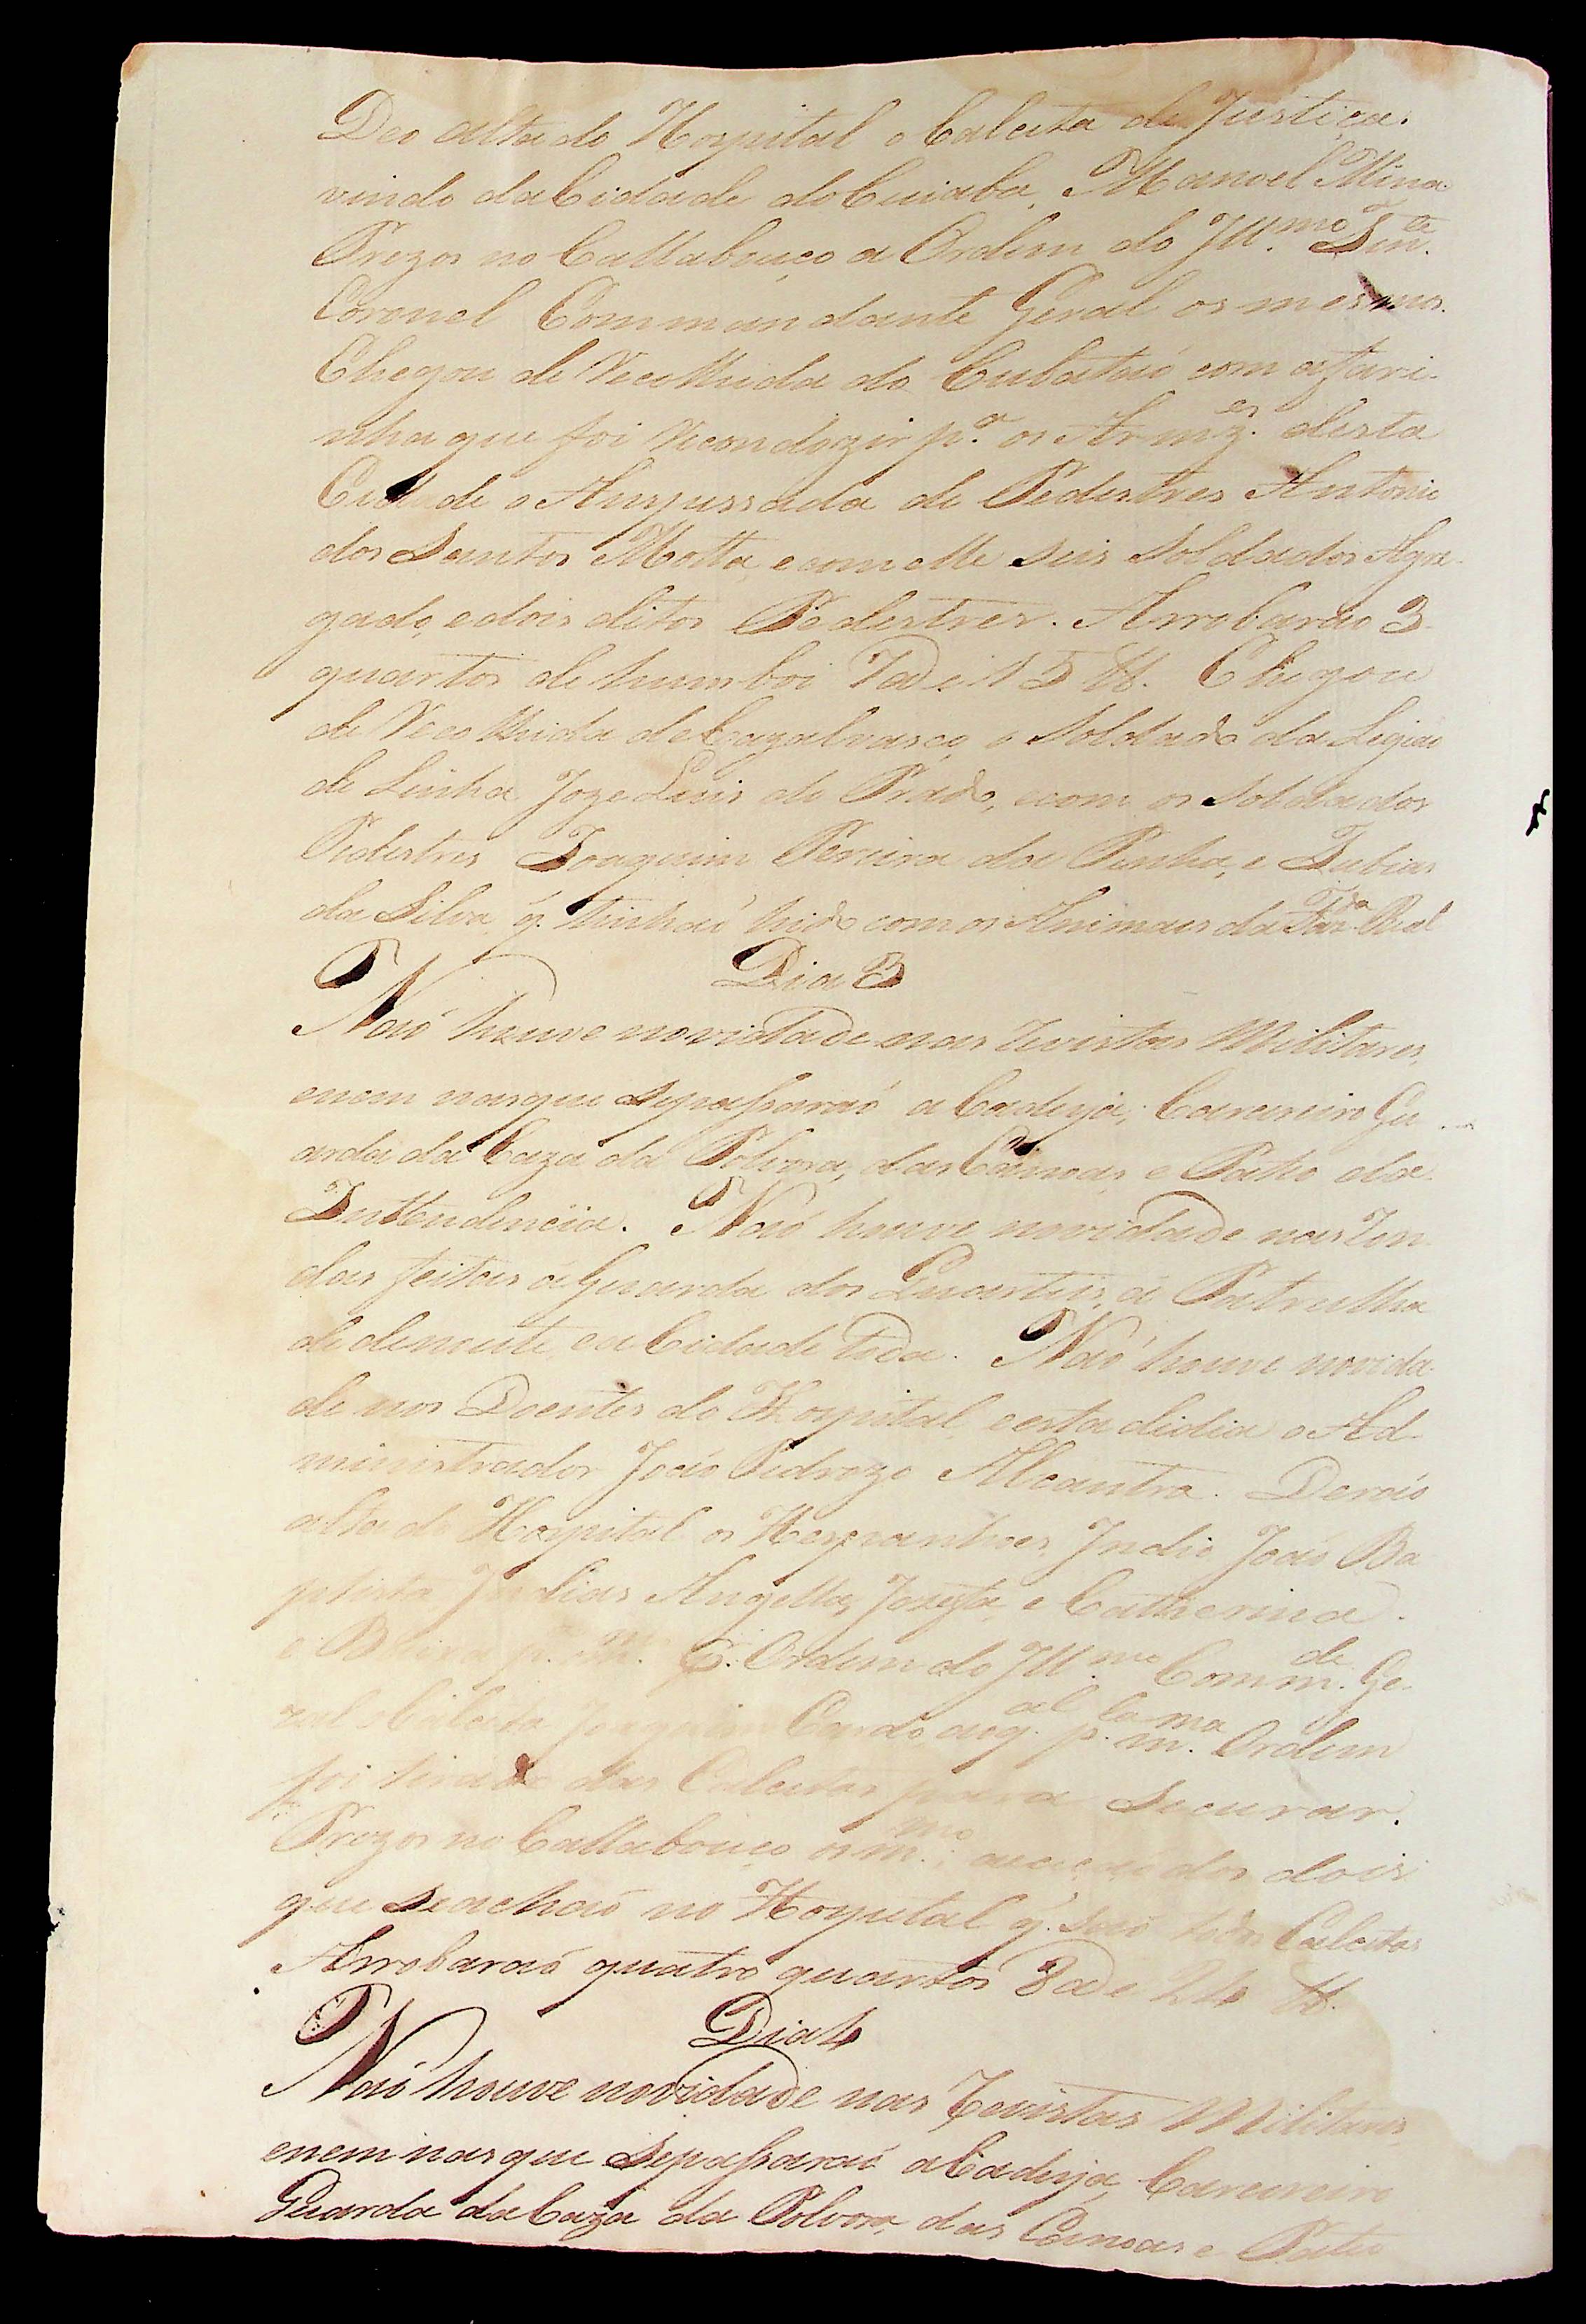 Deo alta do Hospital o Calceta de Justiça.
vindo da Cidade do Cuiaba, Manoel Mina.
Prezos no Callabouço a Ordem do Ill.mo Ten.te
Coronel Commandante Geral os mesmos.
Chegou de Recolhida do Cubataó com a fari-
nha que foi recondozir p.a os Armz.es desta
Cidade o Anspessada de Pedestres Antonio
dos Santos Motta, e com elle seis Soldados Agre-
gado, e dois ditos Pedestres. Arrobarão 3
quartos de hum boi 7@ e 15 lb. Chegou
de Recolhida de Cazalvasco, o Soldado da Legiaó
de Linha Joze Luis do Prado, e com os Soldados
Pedestres Joaquim Pereira da Penha, e Tubias
da Silva q. tinhaó hido com os Animaes da Faz.da Real
Dia 3
Naó houve novidade nas revistas Militares,
enem nasque sepaſsaraó a Cadeya, Carcereiro Gu
arda da Caza da Polvora, das Canoas, e Patio da
Inttendencia. Naó houve novidade nas Ron
das feitas á Guarda dos Quarteis, á Patrulha
de demente, e a Cidade toda. Naó houve novida-
de nos Doentes do Hospital, e esta de dia o Ad-
ministrador Joaó Pedrozo Alcantra. Deraó
alta do Hospital os Hespanhoes, Indio Joaó Ba
ptista, Indias Angella, Jozefa, e Catherina.
e Ordem do Ill.mo Comm.de Ge-
ral o Calceta Joaquim Cardozo q.al p.la m.ma Ordem
foi tirado das Calcetas para Securar.
Prezos no Callabouço os m.mo; dos dois
que Seachaó no Hospital q. saó todos Calcetas
Arrobaraó quatro quartos 8@ e 24 lb.
Dia 4
Naó houve novidade nas Revistas Militares,
enem nasque Sepaſsaraó aCadeya, Carcereiro
Guarda da Caza da Polvora, das Canoas e Patio